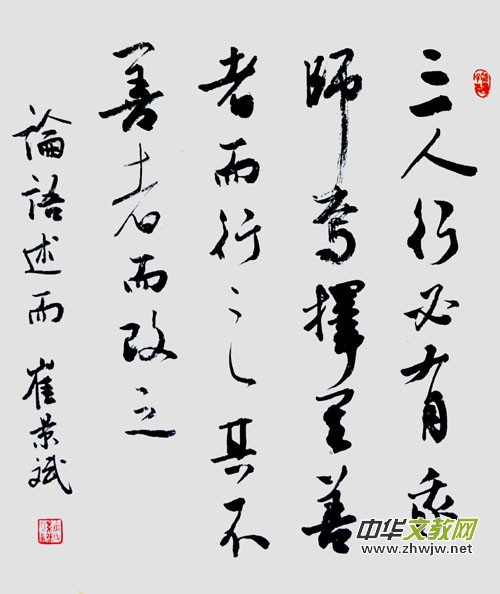 三人行必有我
師焉擇其善
者而行之其不
善者而改之
論語述而 崔景斌
中华文教网
www.zhwjw.net